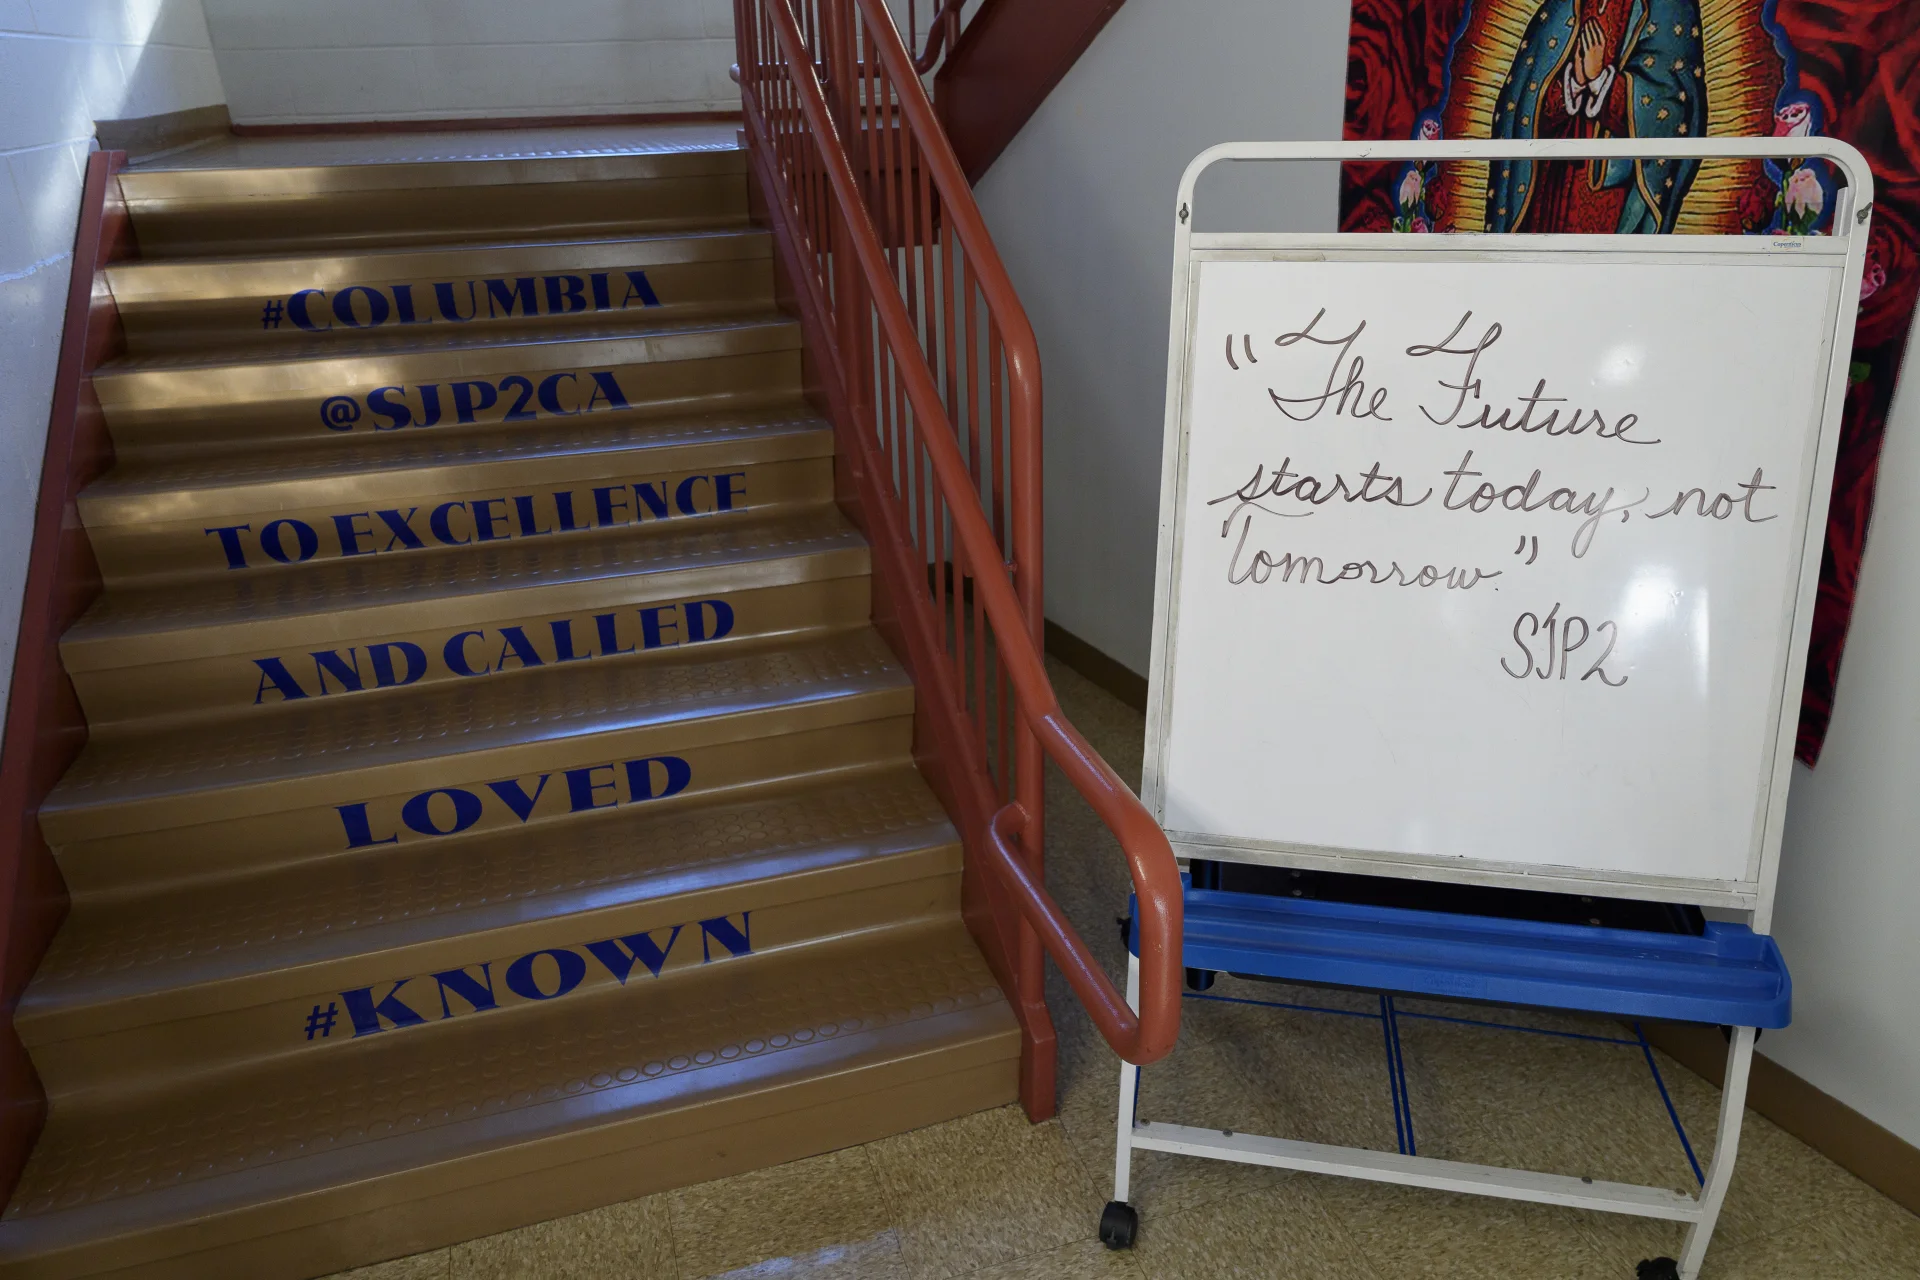 #COLUMBIA
@SJP2CA
TO EXCELLENCE
AND CALLED
LOVED
#KNOWN
"The Future
starts today, not
tomorrow."
SJP2